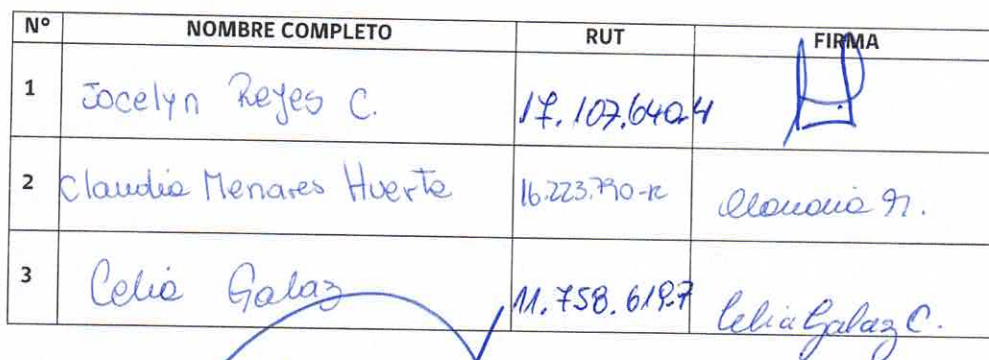 N° NOMBRE COMPLETO RUT FIRMA
1 Jocelyn Reyes C. 17.107.640-4
2 Claudia Menares Huerta 16.223.790-K Claudia M.
3 Celia Galaz 11.758.619-7 Celia Galaz C.